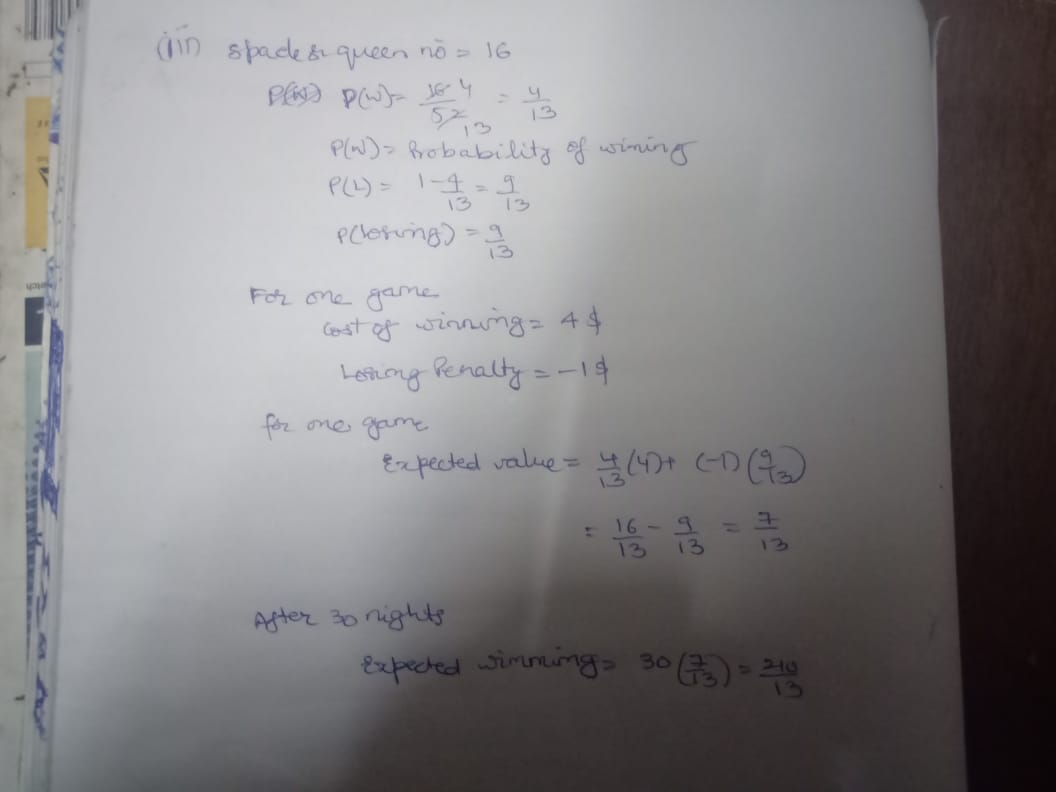 (iii) spade & queen no = 16
P(W) P(W) = 16 4 / 52 13 = 4/13
P(W) = Probability of wining
P(L) = 1 - 4/13 = 9/13
P(losing) = 9/13
For one game
Cost of winning = 4 $
Losing Penalty = -1 $
for one game
Expected value = 4/13 (4) + (-1) (9/13)
= 16/13 - 9/13 = 7/13
After 30 nights
Expected winning = 30 (7/13) = 210/13